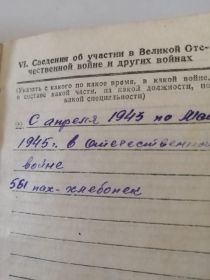 VI. Сведения об участии в Великой Отече-
ственной войне и других войнах
(Указать с какого по какое время, в какой войне,
в составе какой части, на какой должности, по
какой специальности)
С апреля 1943 по Май
1945 г. в отечественной
войне
561 пах-хлебопек